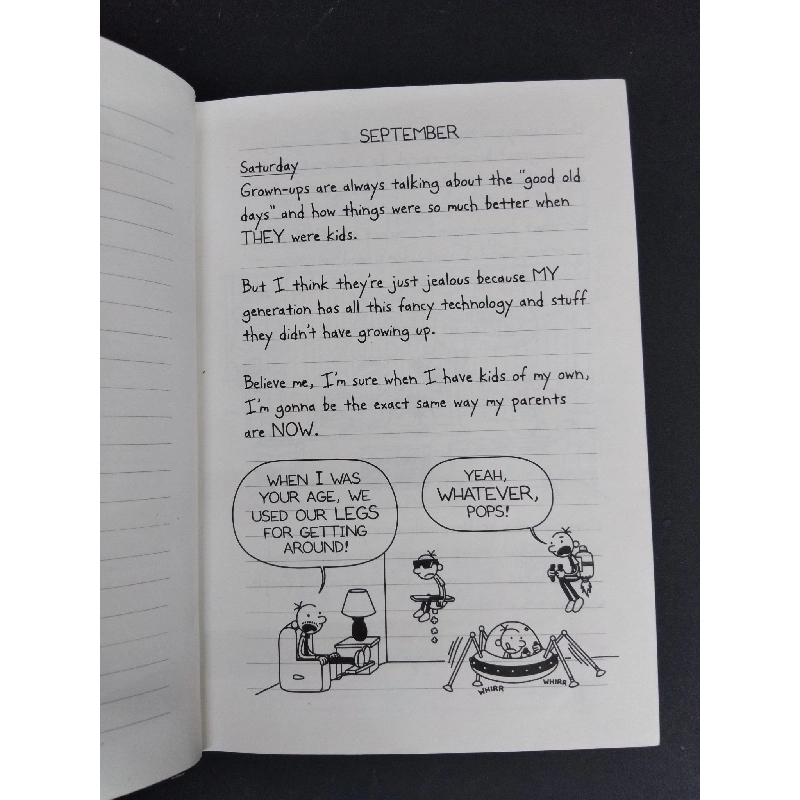 SEPTEMBER
Saturday
Grown-ups are always talking about the "good old
days" and how things were so much better when
THEY were kids.
But I think they're just jealous because MY
generation has all this fancy technology and stuff
they didn't have growing up.
Believe me, I'm sure when I have kids of my own,
I'm gonna be the exact same way my parents
are NOW.
WHEN I WAS
YOUR AGE, WE
USED OUR LEGS
FOR GETTING
AROUND!
YEAH,
WHATEVER,
POPS!
WHIRR
WHIRR